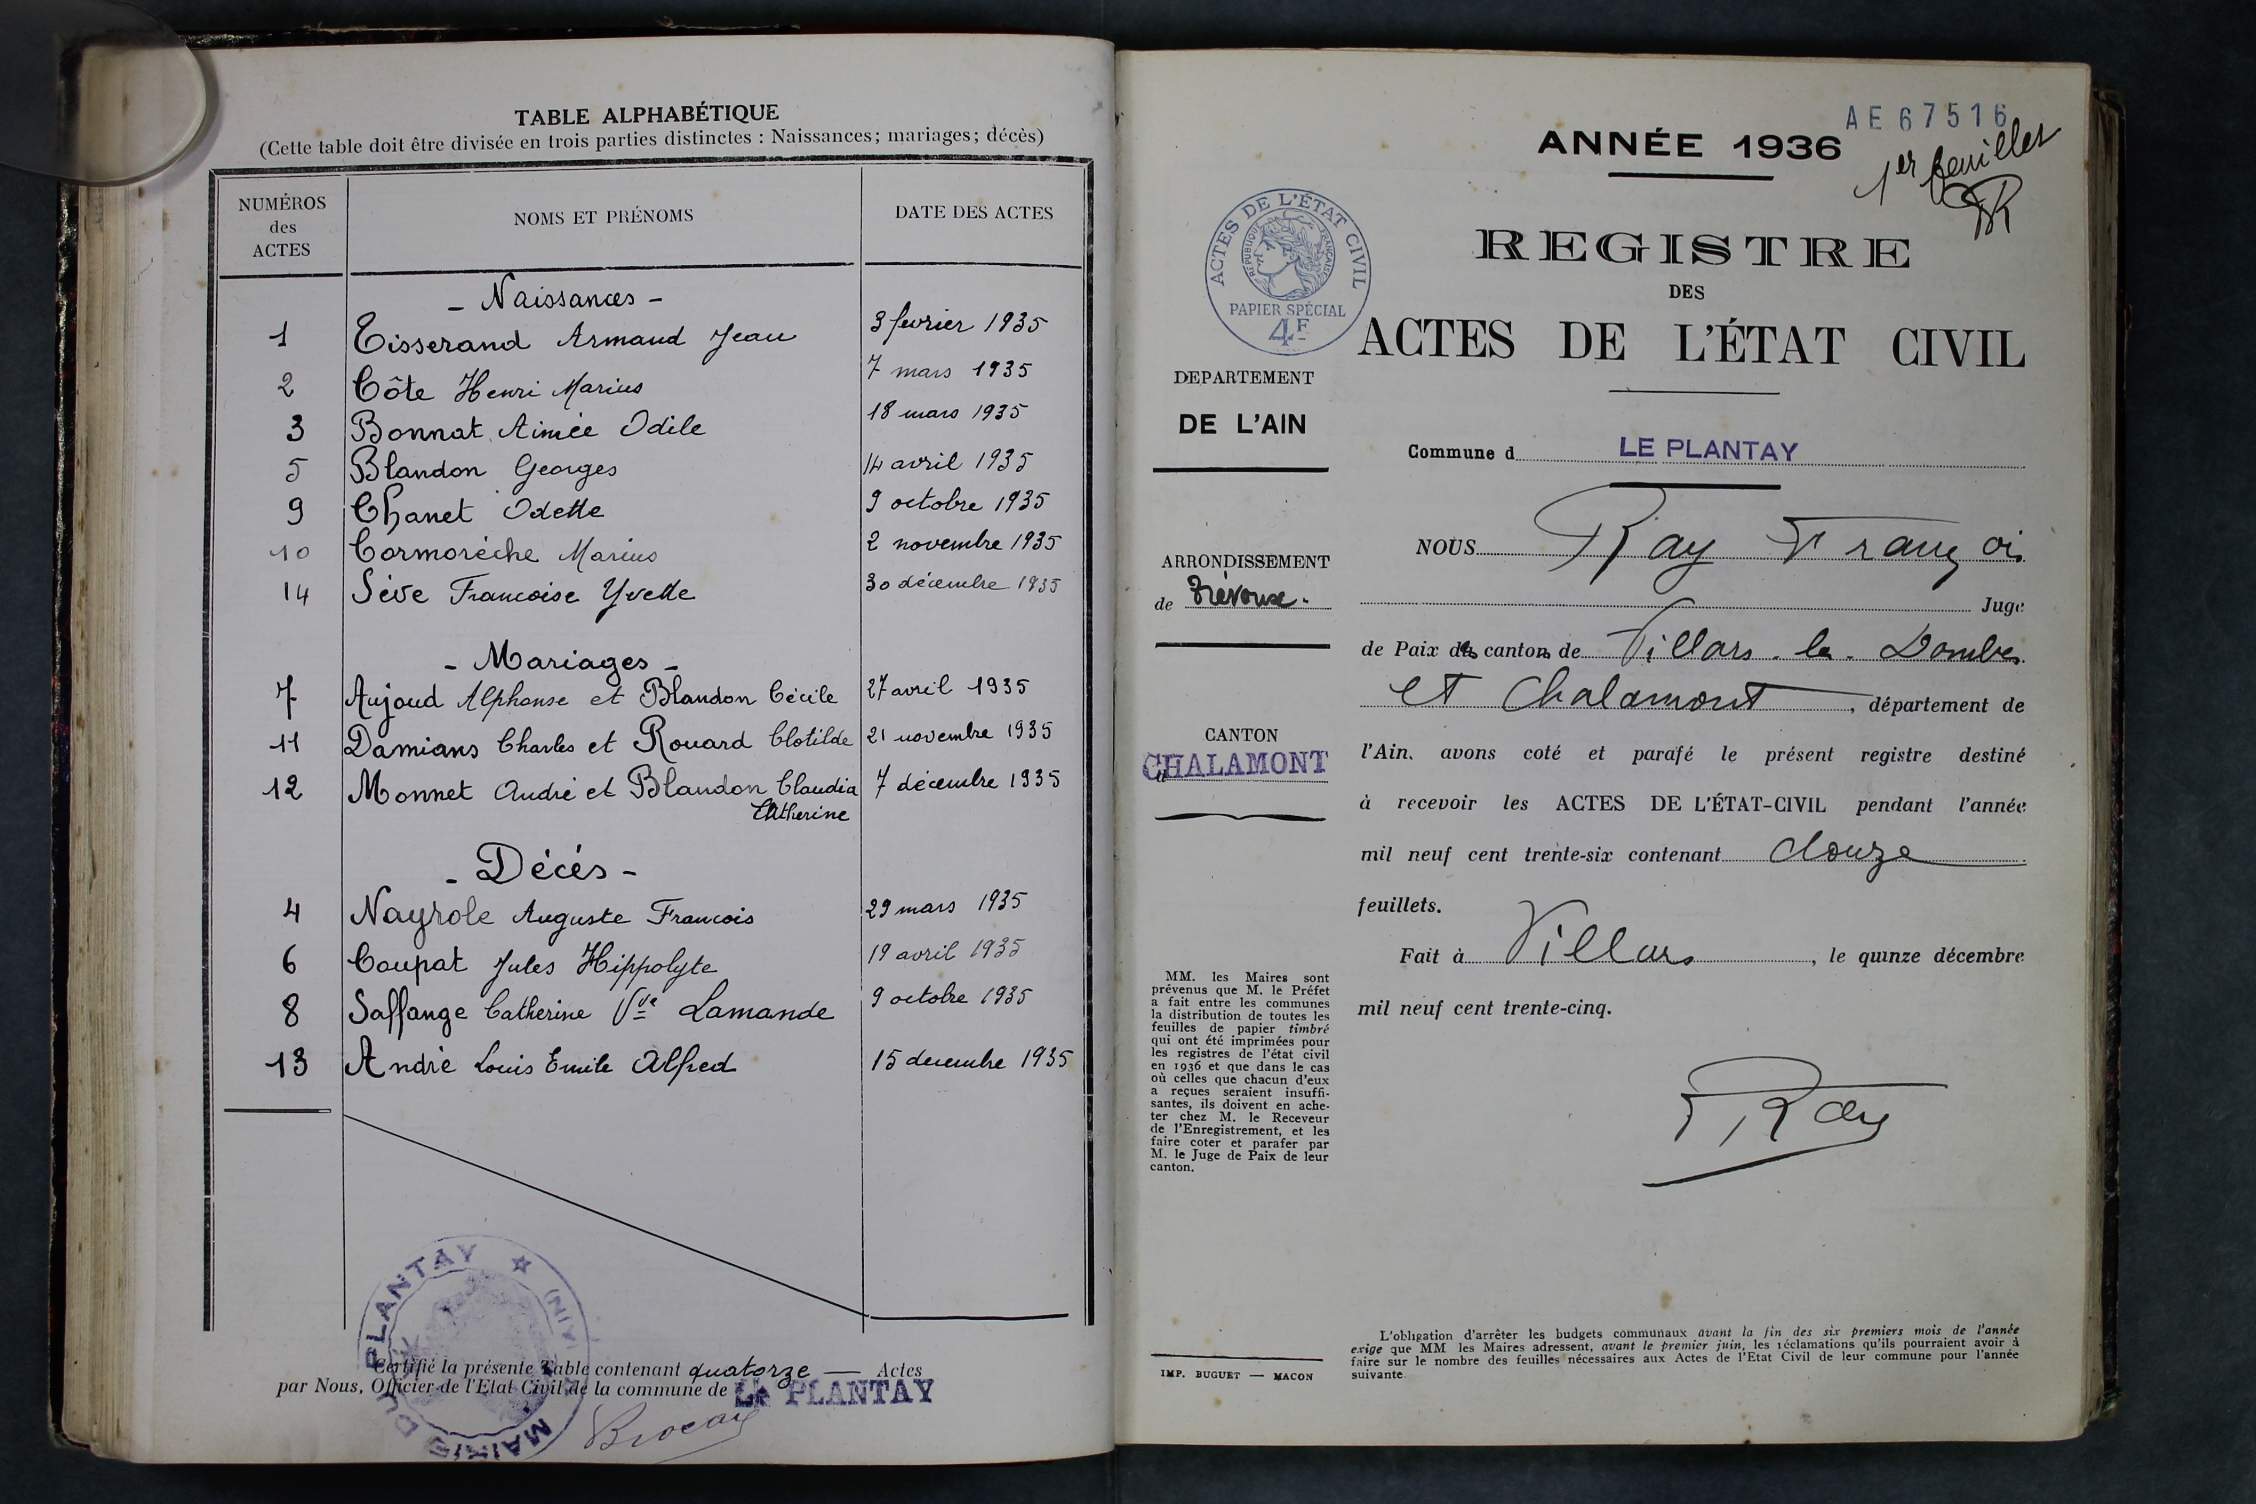 TABLE ALPHABÉTIQUE
(Cette table doit être divisée en trois parties distinctes : Naissances; mariages; décès)
NUMÉROS des ACTES
NOMS ET PRÉNOMS
DATE DES ACTES
- Naissances -
1 Tisserand Armand Jean 3 février 1935
2 Côte Henri Marius 7 mars 1935
3 Bonnat Aimée Odile 18 mars 1935
5 Blandon Georges 14 avril 1935
9 Chanet Odette 9 octobre 1935
10 Cormorèche Marius 2 novembre 1935
14 Sève Francoise Yvette 30 décembre 1935
- Mariages -
7 Aujoud Alphonse et Blandon Cécile 27 avril 1935
11 Damians Charles et Rouard Clotilde 21 novembre 1935
12 Monnet André et Blandon Claudia 7 décembre 1935
Catherine
- Décés -
4 Nayrole Auguste Francois 29 mars 1935
6 Coupat Jules Hippolyte 19 avril 1935
8 Saffange Catherine Vve Lamande 9 octobre 1935
13 André Louis Emile Alfred 15 decembre 1935
MAIRIE DU PLANTAY ★ (AIN)
Certifié la présente Table contenant quatorze — Actes
par Nous, Officier de l'Etat Civil de la commune de LE PLANTAY
AE 67516
ANNÉE 1936
1er feuillet
FR
ACTES DE L'ÉTAT CIVIL
RÉPUBLIQUE FRANÇAISE
PAPIER SPÉCIAL
4F
REGISTRE
DES
ACTES DE L'ÉTAT CIVIL
DEPARTEMENT
DE L'AIN
ARRONDISSEMENT
de Trévoux.
CANTON
d CHALAMONT
MM. les Maires sont
prévenus que M. le Préfet
a fait entre les communes
la distribution de toutes les
feuilles de papier timbré
qui ont été imprimées pour
les registres de l'état civil
en 1936 et que dans le cas
où celles que chacun d'eux
a reçues seraient insuffi-
santes, ils doivent en ache-
ter chez M. le Receveur
de l'Enregistrement, et les
faire coter et parafer par
M. le Juge de Paix de leur
canton.
IMP. BUGUET — MACON
Commune d LE PLANTAY
NOUS Ray François
Juge
de Paix des cantons de Villars-les-Dombes
et Chalamont, département de
l'Ain, avons coté et parafé le présent registre destiné
à recevoir les ACTES DE L'ÉTAT-CIVIL pendant l'année
mil neuf cent trente-six contenant douze
feuillets.
Fait à Villars, le quinze décembre
mil neuf cent trente-cinq.
F Ray
L'obligation d'arrêter les budgets communaux avant la fin des six premiers mois de l'année
exige que MM les Maires adressent, avant le premier juin, les réclamations qu'ils pourraient avoir à
faire sur le nombre des feuilles nécessaires aux Actes de l'Etat Civil de leur commune pour l'année
suivante.